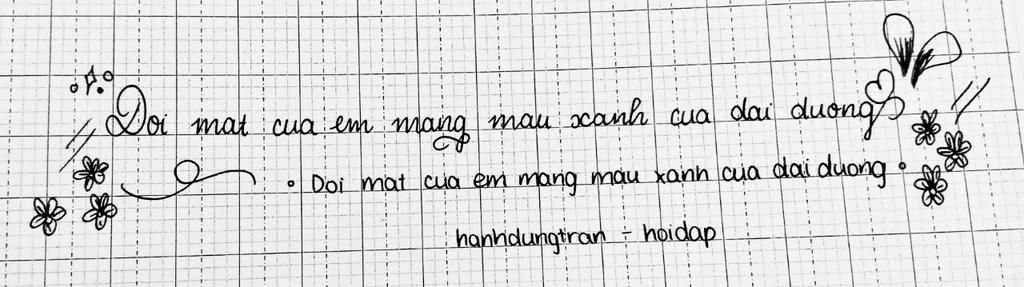 Doi mat cua em mang mau xanh cua dai duong
Doi mat cua em mang mau xanh cua dai duong
hanhdungtran - hoidap